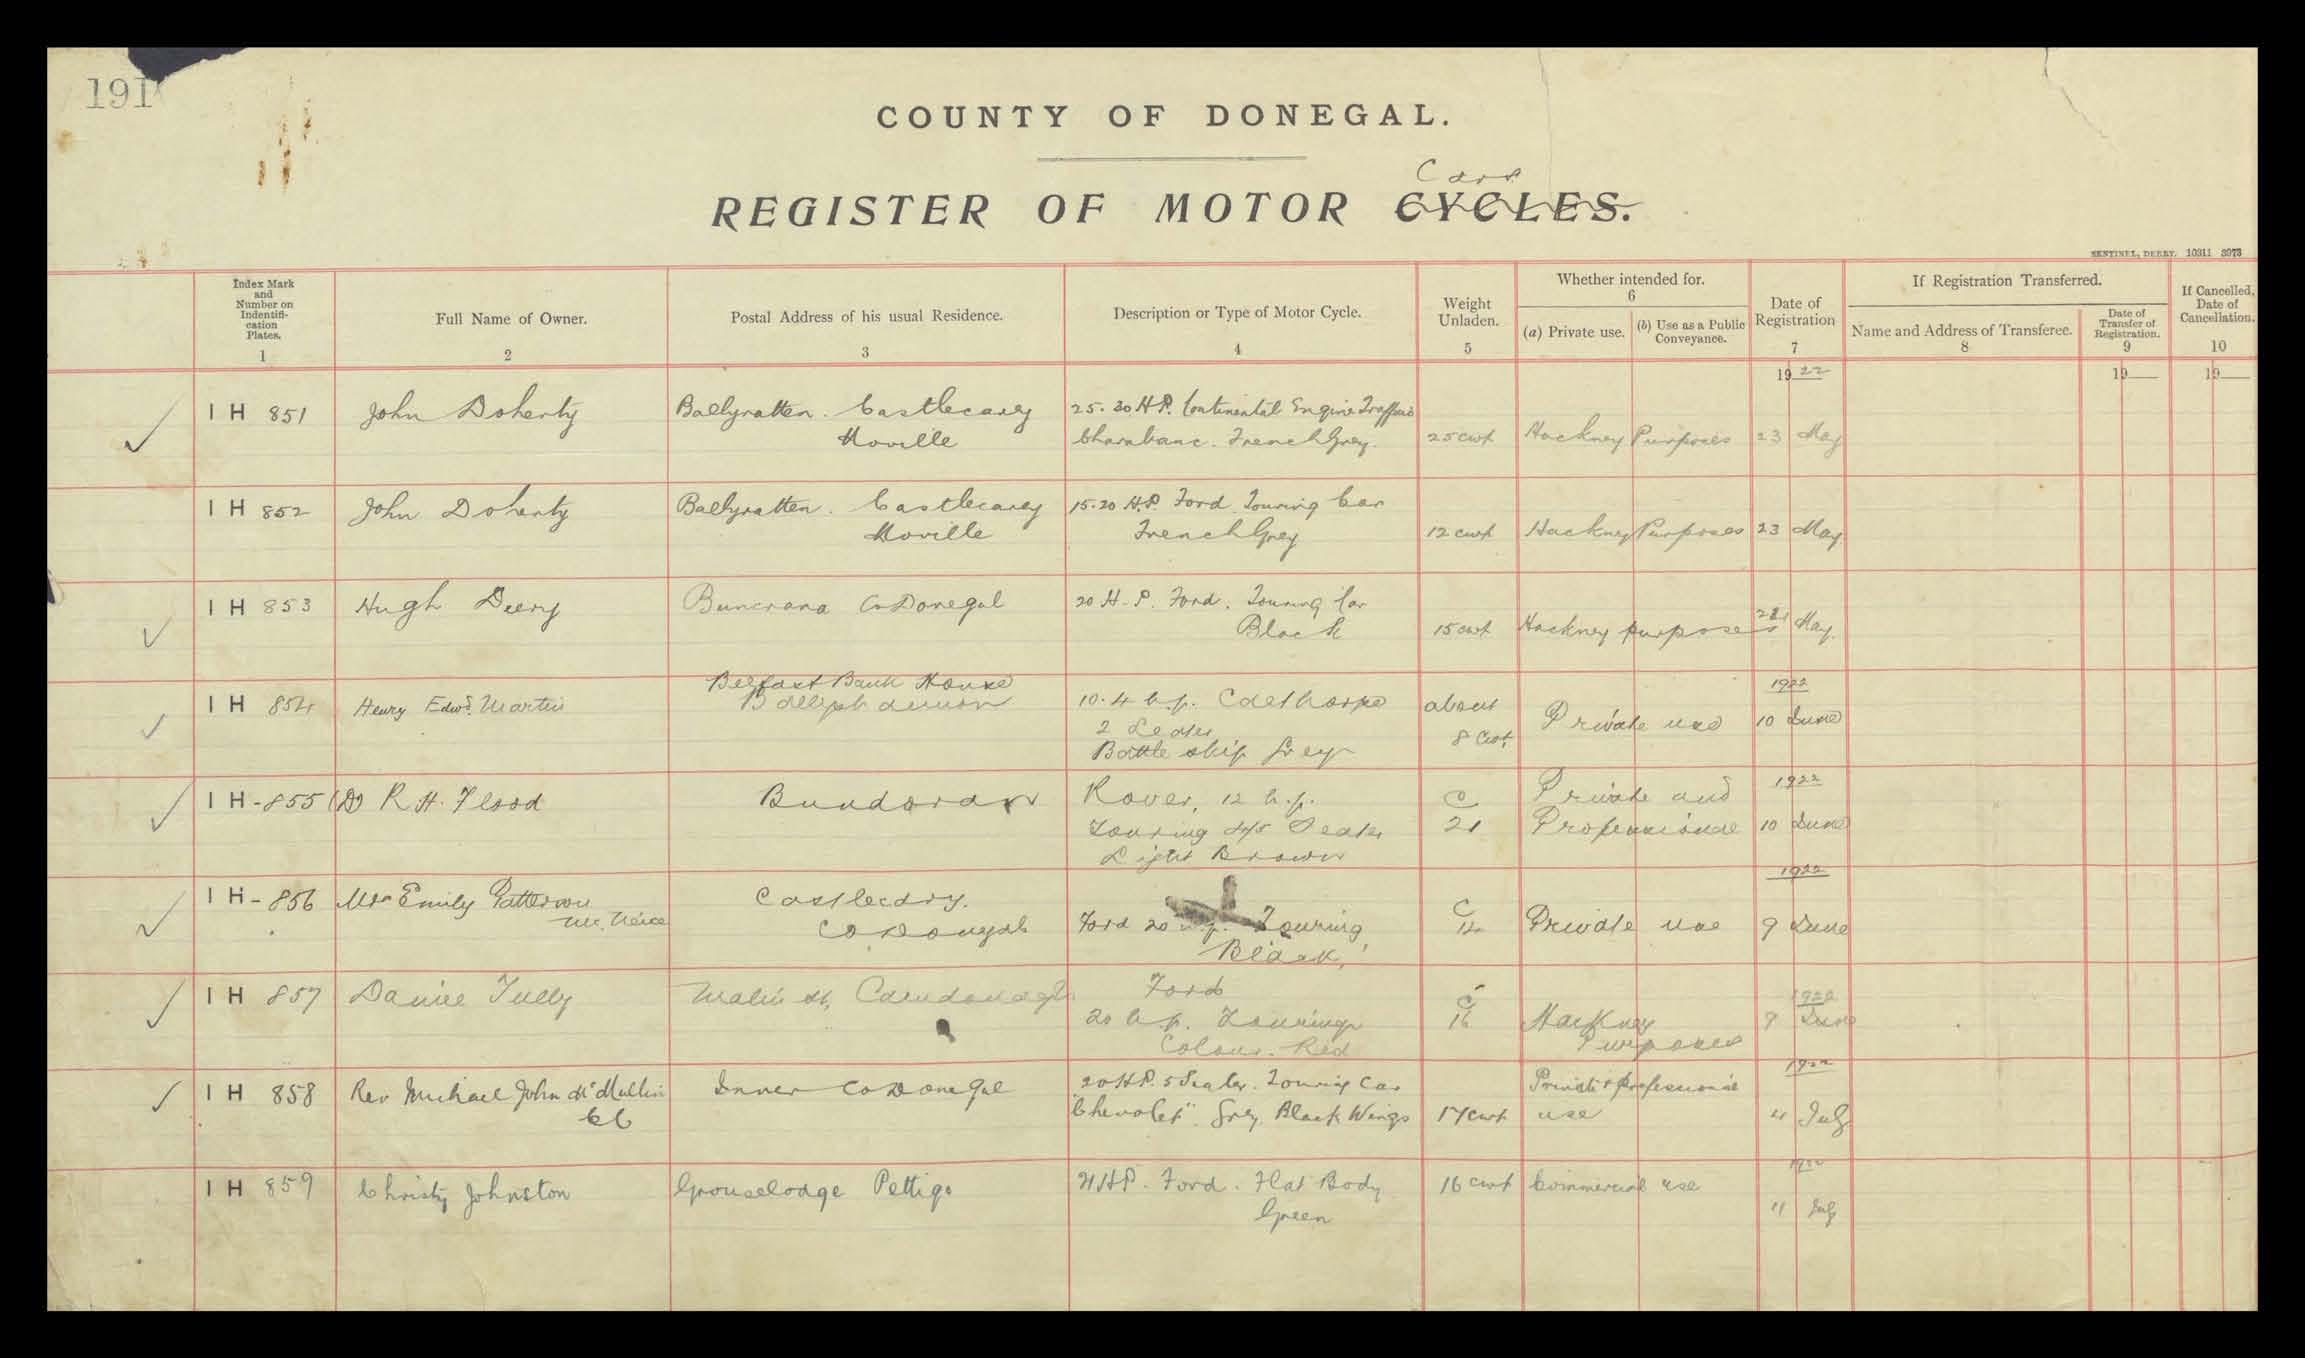 191
COUNTY OF DONEGAL.
Cars
REGISTER OF MOTOR CYCLES.
SENTINEL, DERRY. 10311 3973
Index Mark and Number on Indentifi-cation Plates. 1
Full Name of Owner. 2
Postal Address of his usual Residence. 3
Description or Type of Motor Cycle. 4
Weight Unladen. 5
Whether intended for. 6
(a) Private use.
(b) Use as a Public Conveyance.
Date of Registration 7
If Registration Transferred.
Name and Address of Transferee. 8
Date of Transfer of Registration. 9
If Cancelled, Date of Cancellation. 10
1922 19 19
IH 851 John Doherty Ballyratten. Castlecarey 25.30 H.P. Continental Engine
Moville Charabanc. French Grey. 25 cwt Hackney Purposes 23 May
IH 852 John Doherty Ballyratten. Castlecarey 15.20 H.P. Ford Touring Car
Moville French Grey 12 cwt Hackney Purposes 23 May
IH 853 Hugh Deery Buncrana Co Donegal 20 H.P. Ford. Touring Car
Black 15 cwt Hackney purposes May.
Belfast Bank House 1922
IH 854 Henry Edwd. Martin Ballyshannon 10.4 h.p. Calthorpe about Private use 10 June
2 Seater 8 cwt.
Battle ship Grey
IH-855 (Dr) R. H. Flood Bundoran Rover, 12 h.p. C Private and 1922
Touring 4/5 Seater 21 Professional 10 June
Light Brown
1922
IH-856 Mrs Emily Patterson Castlecary. C
Co Donegal Ford 20 h.p. Touring 14 Private use 9 June
Black,
IH 857 Daniel Tully Malin St, Carndonagh Ford C 1922
20 h.p. Touring 16 Hackney 9 June
Colour. Red Purposes
1922
IH 858 Rev Michael John McMullin Inver Co Donegal 20 H.P. 5 Seater. Touring Car Private & professional
CC "Chevrolet". Grey, Black Wings 17 cwt use 4 July
1922
IH 859 Christy Johnston Grouselodge Pettigo 21 H.P. Ford. Flat Body 16 cwt Commercial use
Green 11 July